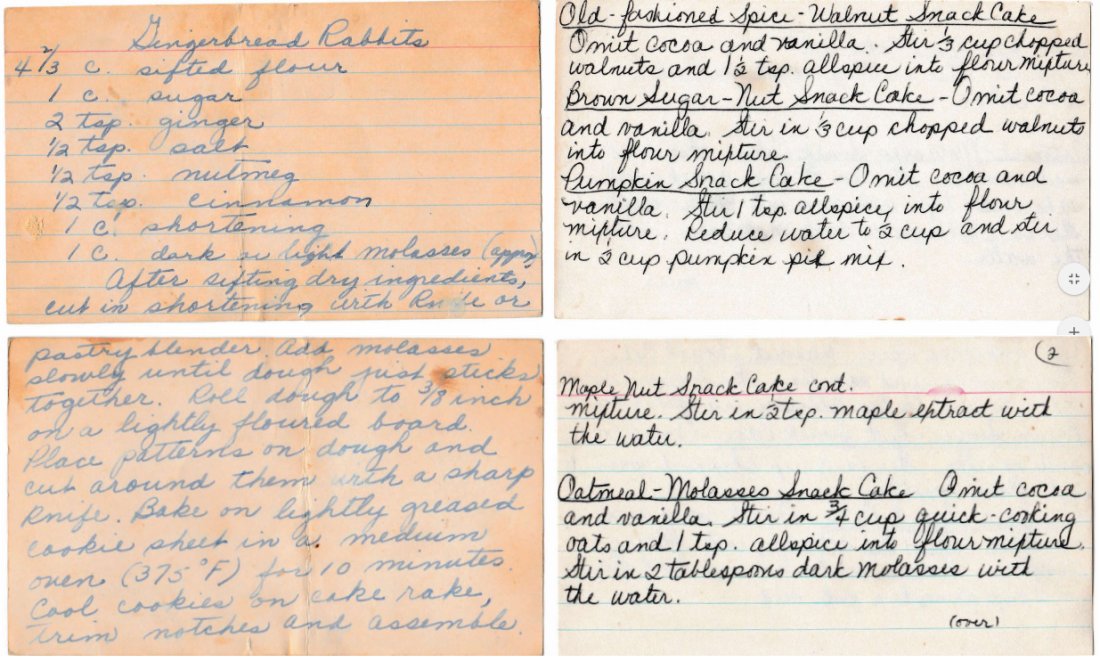 Gingerbread Rabbits
4 2/3 c. sifted flour
1 c. sugar
2 tsp. ginger
1/2 tsp. salt
1/2 tsp. nutmeg
1/2 tsp. cinnamon
1 c. shortening
1 c. dark or light molasses (approx)
After sifting dry ingredients,
cut in shortening with knife or
pastry blender. Add molasses
slowly until dough just sticks
together. Roll dough to 3/8 inch
on a lightly floured board.
Place patterns on dough and
cut around them with a sharp
knife. Bake on lightly greased
cookie sheet in a medium
oven (375°F) for 10 minutes.
Cool cookies on cake rake,
trim notches and assemble.
Old-fashioned Spice-Walnut Snack Cake
Omit cocoa and vanilla. Stir 1/3 cup chopped
walnuts and 1 1/2 tsp. allspice into flour mixture
Brown Sugar-Nut Snack Cake - Omit cocoa
and vanilla. Stir in 1/3 cup chopped walnuts
into flour mixture
Pumpkin Snack Cake - Omit cocoa and
vanilla. Stir 1 tsp allspice, into flour
mixture. Reduce water to 1/2 cup and stir
in 1/2 cup pumpkin pie mix.
2
Maple Nut Snack Cake cont.
mixture. Stir in 1/2 tsp. maple extract with
the water.
Oatmeal-Molasses Snack Cake Omit cocoa
and vanilla. Stir in 3/4 cup quick-cooking
oats and 1 tsp. allspice into flour mixture.
Stir in 2 tablespoons dark molasses with
the water.
(over)